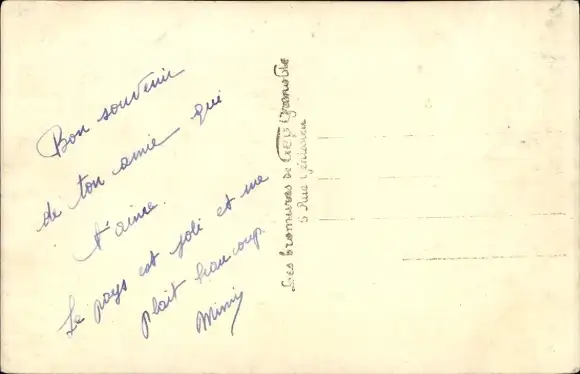 Bon souvenir
de ton amie qui
t'aime.
Le pays est joli et me
plait beaucoup.
Mimi
Les bromures de Gep Grenoble
5 Rue